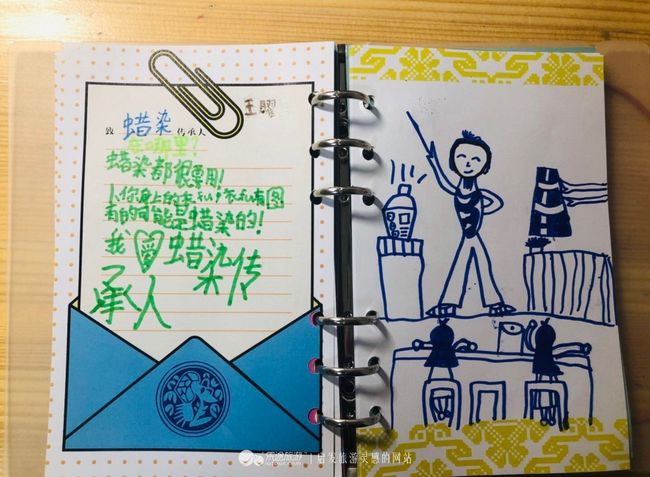 王曜
致 蜡染 传承人
在哪里?
蜡染都很漂亮!
人你身上的衣
有的可能是蜡染的!
我爱蜡染传
承人
乐途旅游 启发旅游灵感的网站